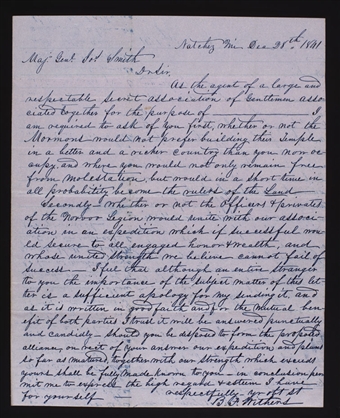 Natchez Mi. Dec 28th. 1841
Maj. Genl. Jos Smith
Dr Sir.
As the agent of a large and
respectable secret association of Gentlemen asso-
ciated together for the purpose of ———— I
am required to ask of you first, whether or not the
Mormons would not prefer building their Temple
in a better and a richer country than you now oc-
cupy and where you would not only remain free
from molestation but would in a short time in
all probability become the rulers of the Land
Secondly – Whether or not the Officers & privates
of the Novoo Legion would unite with our associ-
ation in an expedition which if successful wou-
ld secure to all engaged honor & wealth, and
whose united strength we believe cannot fail of
success — I feel that although an entire stranger
to you the importance of the subject matter of this let-
ter is a sufficient apology for my sending it, and
as it is written in good faith and for the mutual ben-
efit of both parties I trust it will be answered punctually
and candidly – Should you be disposed to form the proposed
alliance, on rect of your answer our expedition and plans
so far as matured, together with our strength which exceeds
yours shall be fully made known to you – in conclusion per-
mit me to express the high regard & esteem I have
for yourself respectfully yr obt St
B. Withers